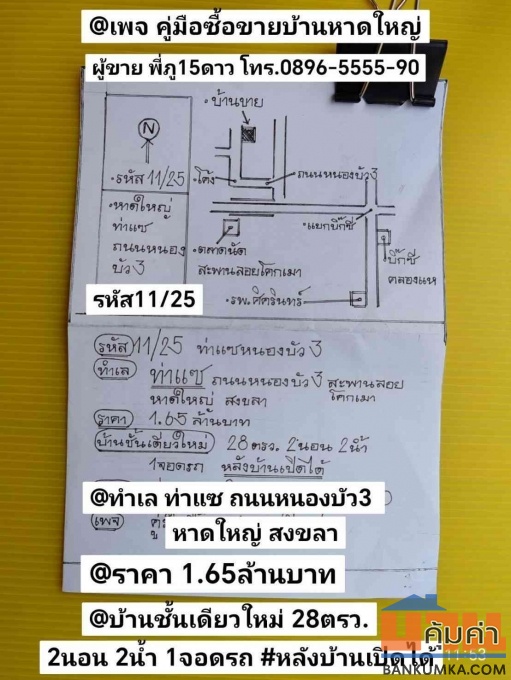 @เพจ คู่มือซื้อขายบ้านหาดใหญ่
ผู้ขาย พี่ภู15ดาว โทร.0896-5555-90
บ้านขาย
N
รหัส 11/25
โค้ง
ถนนหนองบัว3
หาดใหญ่
ท่าแซ
ถนนหนอง
บัว 3
แยกบิ๊กซี
ตลาดนัด
สะพานลอยโคกเมา
บิ๊กซี
คลองแห
รพ.ศิครินทร์
รหัส11/25
รหัส 11/25 ท่าแซหนองบัว 3
ทำเล ท่าแซ ถนนหนองบัว 3 สะพานลอย
โคกเมา
หาดใหญ่ สงขลา
ราคา 1.65 ล้านบาท
บ้านชั้นเดียวใหม่ 28 ตรว. 2นอน 2น้ำ
1จอดรถ หลังบ้านเปิดได้
@ทำเล ท่าแซ ถนนหนองบัว3
เพจ
หาดใหญ่ สงขลา
@ราคา 1.65ล้านบาท
@บ้านชั้นเดียวใหม่ 28ตรว.
2นอน 2น้ำ 1จอดรถ #หลังบ้านเปิดได้
คุ้มค่า
BANKUMKA.COM